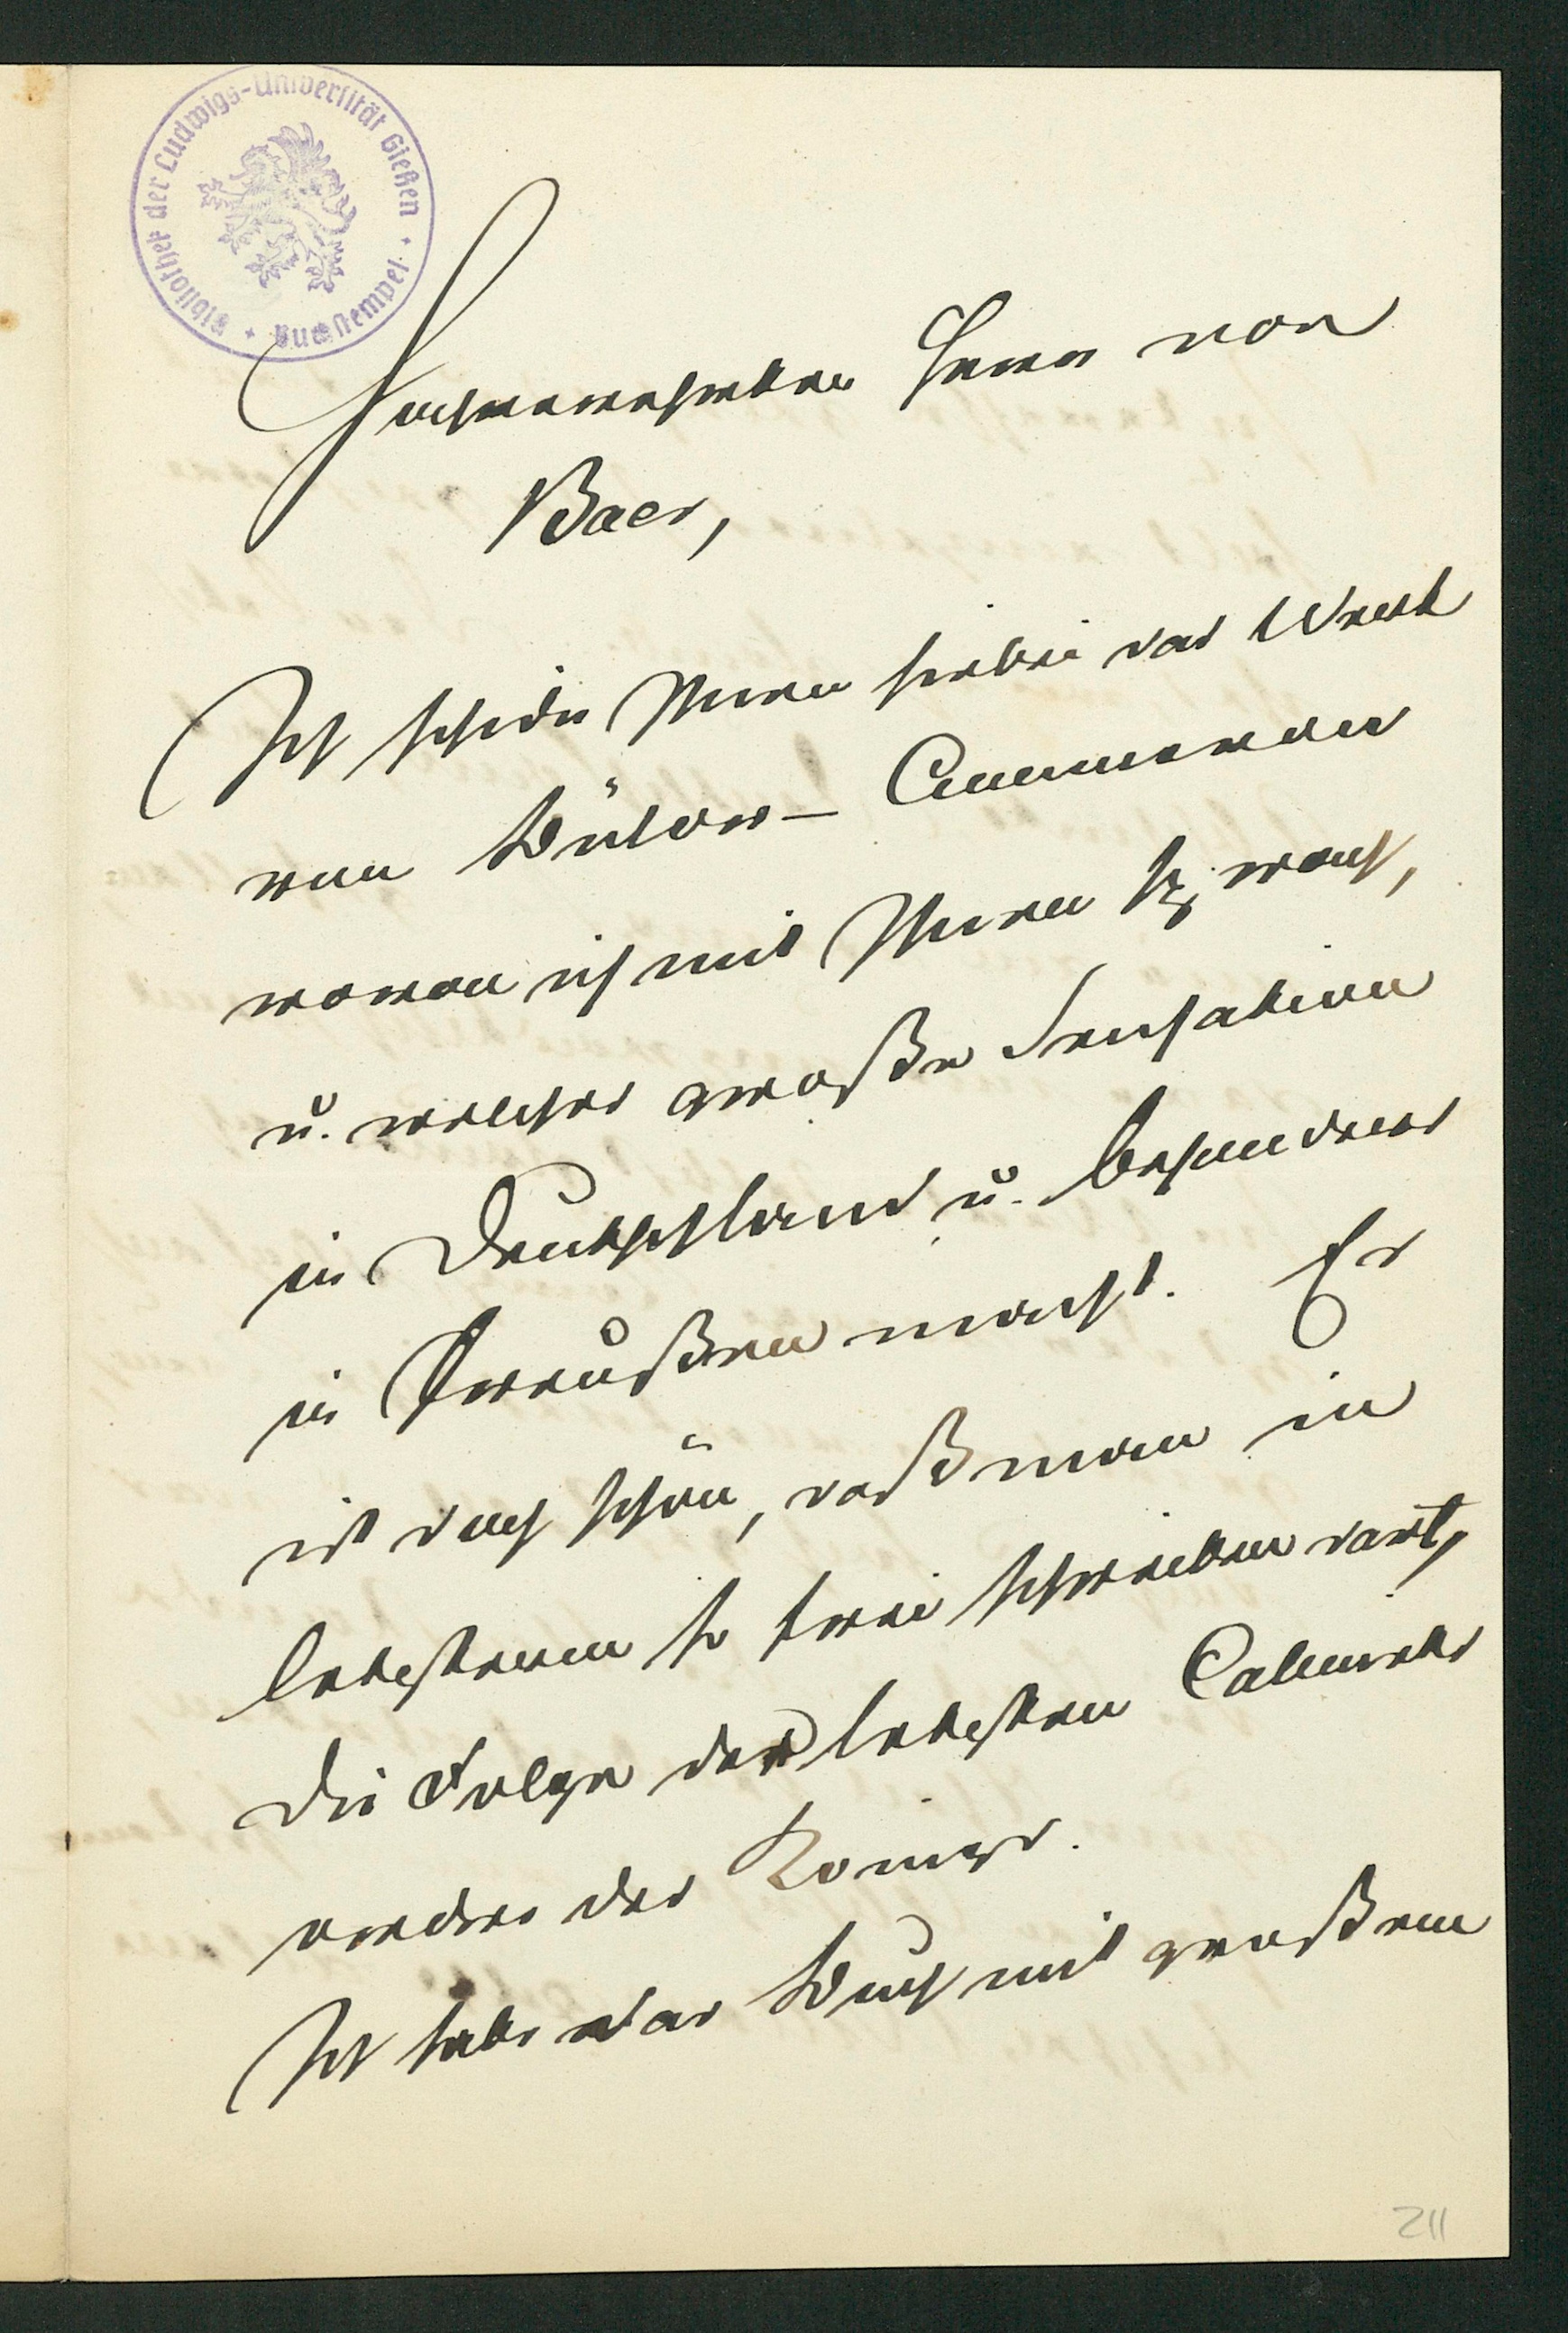 Bibliothek der Ludwigs-Universität Gießen · Buchstempel ·
Hochverehrter Herr von
Baer,
Ich schicke Ihnen hiebei das Werk
von Bülow-Cummerow
wovon ich mit Ihnen sprach,
u. welches große Sensation
in Deutschland u. besonders
in Preußen macht. Es
ist doch schön, daß man in
letzterem so frei schreiben darf,
die Folge der letzten Cabinets
ordre des Königs.
Ich habe das Buch mit großem
211